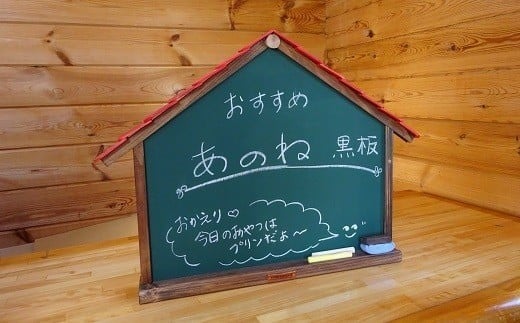 おすすめ
あのね 黒板
おかえり♡
今日のおやつは
プリンだよ〜